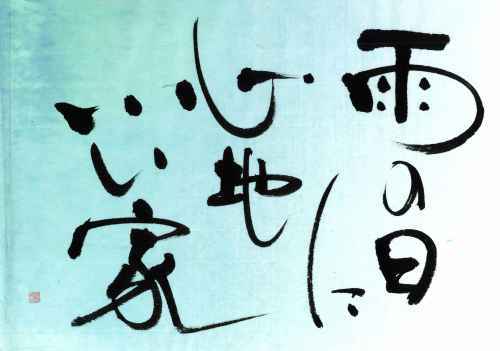 雨の日に
心地
いい家